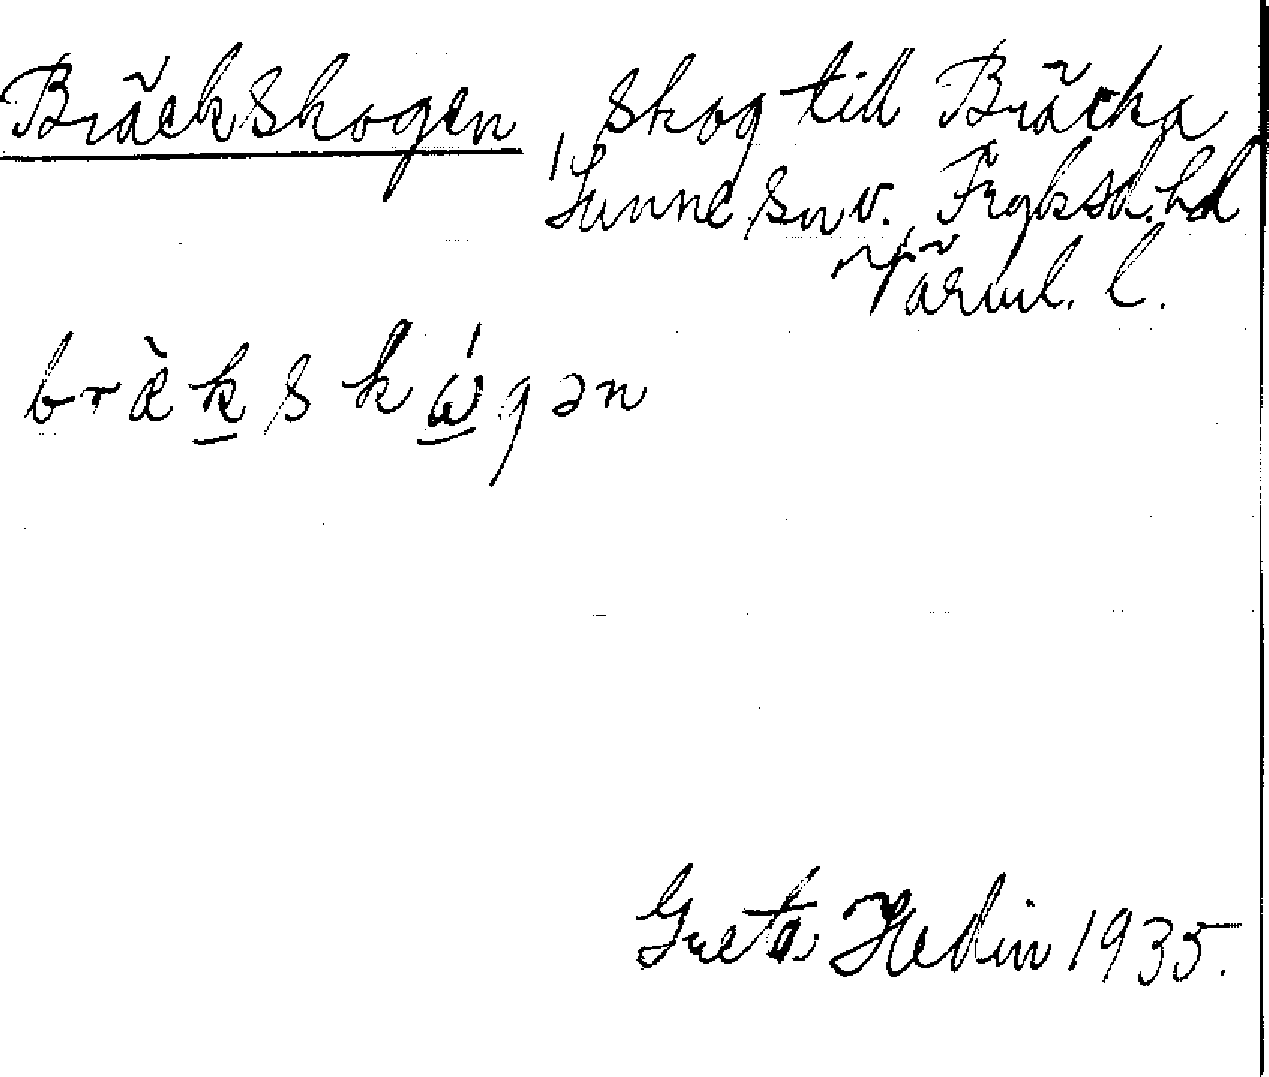 Bräckskogen, skog till Bräcka
Sunne sn v. Fryksd. hd
Värml. l.
bræ̀kskώgən
Greta Hedin 1935.